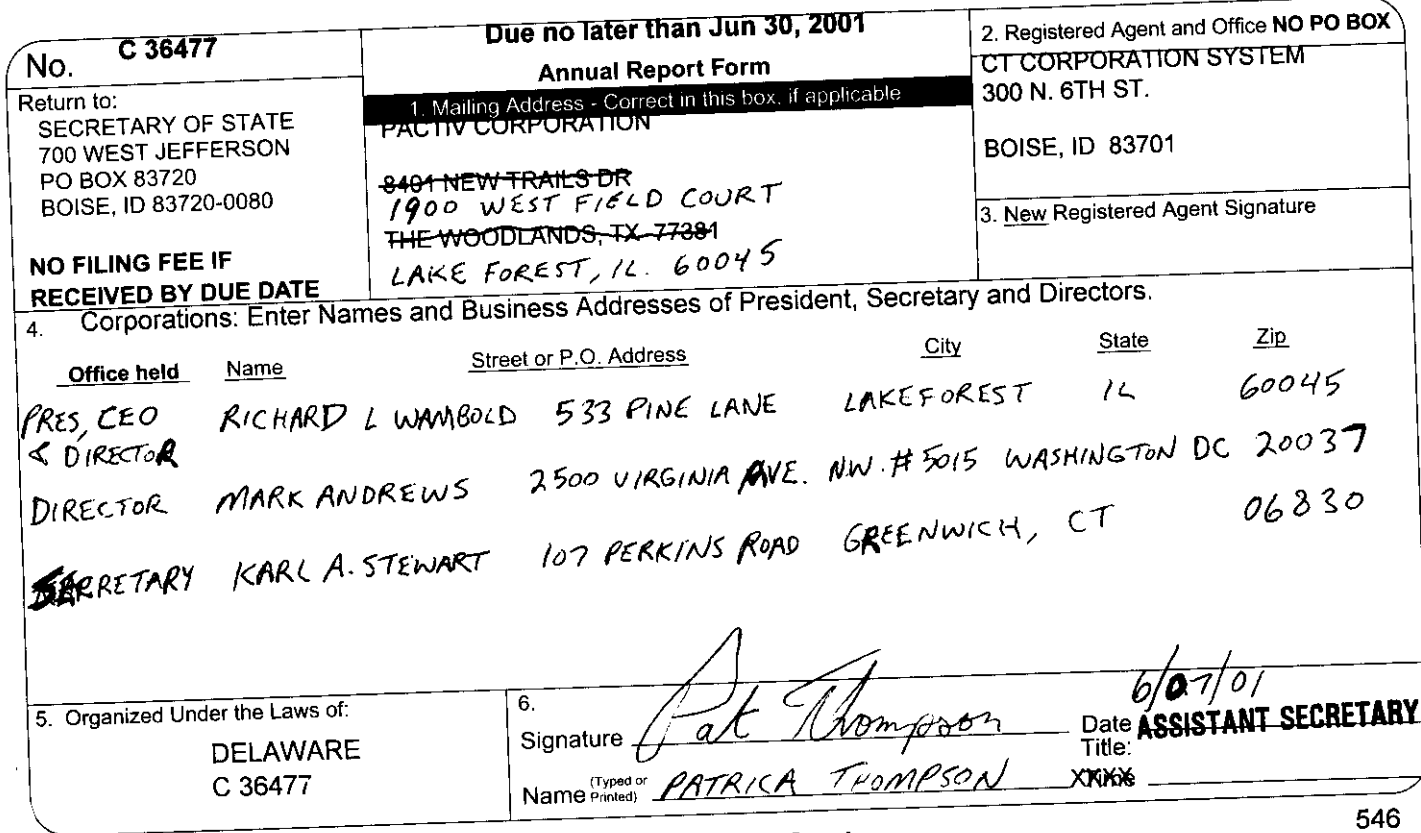 No. C 36477
Return to:
SECRETARY OF STATE
700 WEST JEFFERSON
PO BOX 83720
BOISE, ID 83720-0080
NO FILING FEE IF
RECEIVED BY DUE DATE
Due no later than Jun 30, 2001
Annual Report Form
1. Mailing Address - Correct in this box, if applicable
PACTIV CORPORATION
8401 NEW TRAILS DR
1900 WEST FIELD COURT
THE WOODLANDS, TX 77381
LAKE FOREST, IL. 60045
2. Registered Agent and Office NO PO BOX
CT CORPORATION SYSTEM
300 N. 6TH ST.
BOISE, ID 83701
3. New Registered Agent Signature
4. Corporations: Enter Names and Business Addresses of President, Secretary and Directors.
Office held Name Street or P.O. Address City State Zip
PRES, CEO RICHARD L WAMBOLD 533 PINE LANE LAKE FOREST IL 60045
& DIRECTOR
DIRECTOR MARK ANDREWS 2500 VIRGINIA AVE. NW. # 5015 WASHINGTON DC 20037
SERRETARY KARL A. STEWART 107 PERKINS ROAD GREENWICH, CT 06830
5. Organized Under the Laws of:
DELAWARE
C 36477
6.
Signature Pat Thompson Date 6/07/01
Title: ASSISTANT SECRETARY
Name (Typed or Printed) PATRICA THOMPSON
546